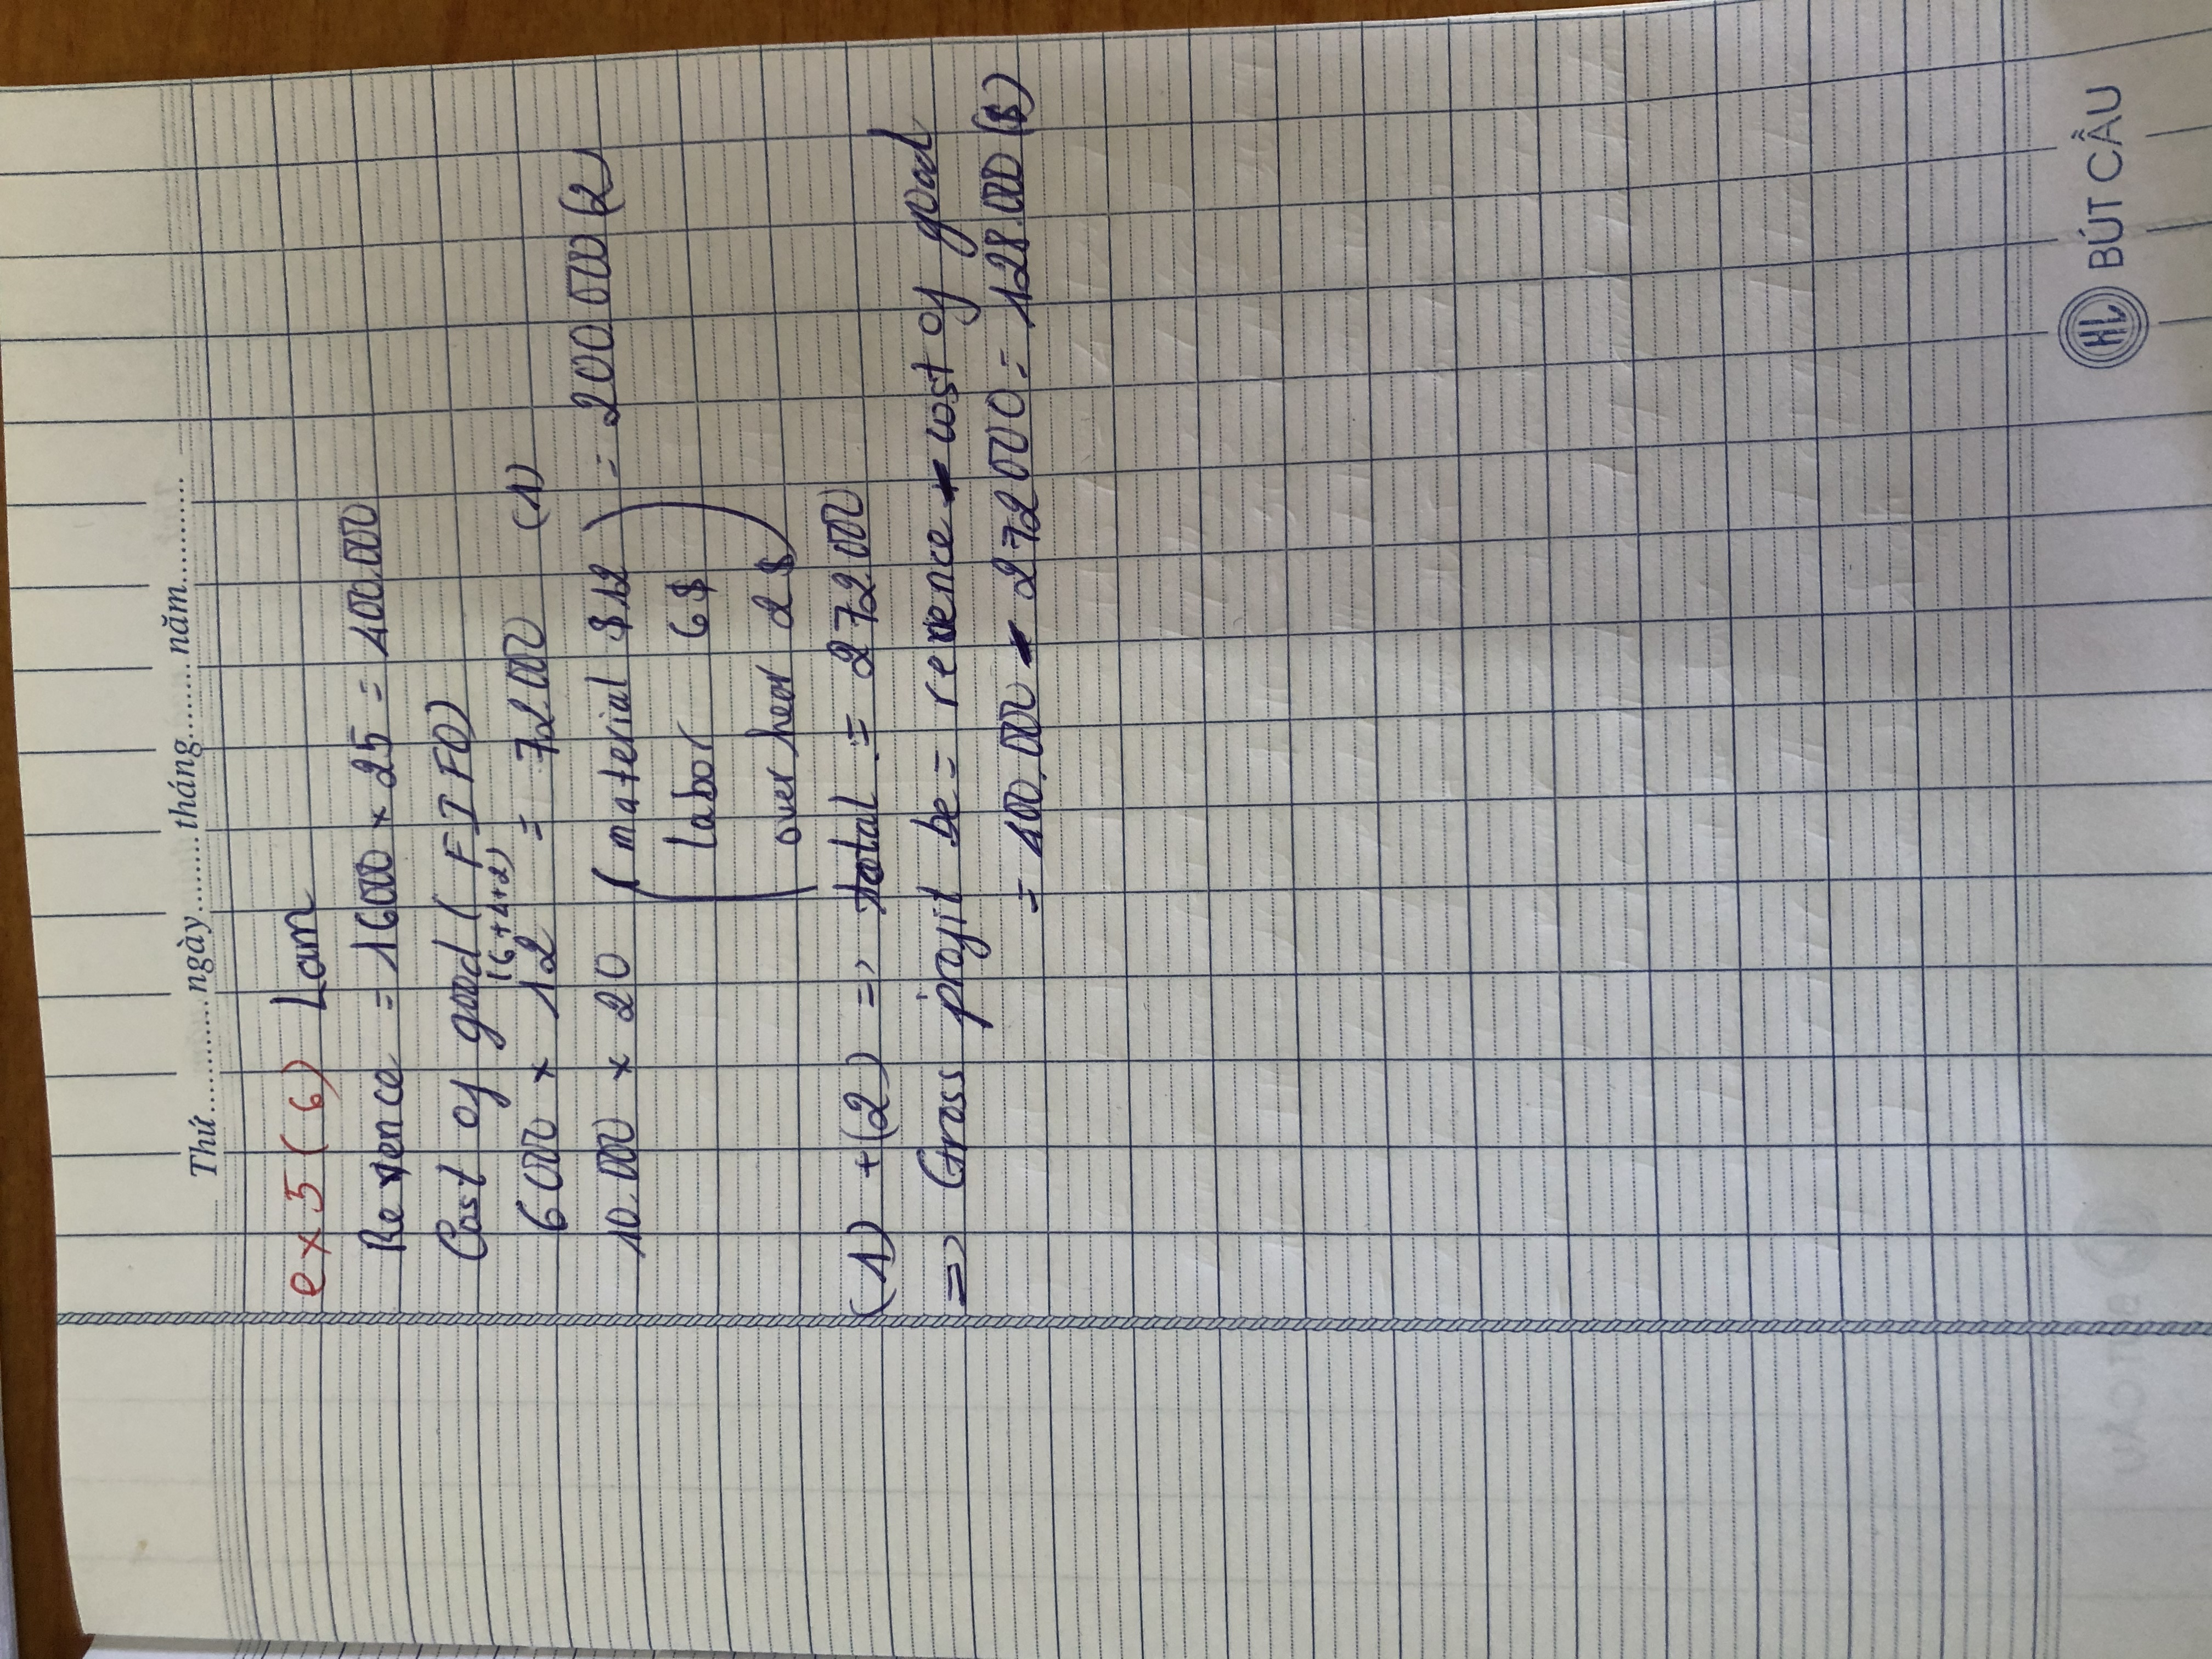 Thứ............ngày.........tháng.........năm............
ex 5 (6) Lam
Revence = 16000 × 25 = 400.000
Cost of good ( FIFO)
(6+4+2)
6000 × 12 = 72000 (1)
10.000 × 20 ( material $12 ) = 200.000 (2)
labor 6$
over hear 2$
(1) + (2) => total = 272000
=> Gross profit be = revence - cost of good
= 400.000 - 272000 = 128.000 ($)
HL BÚT CẦU